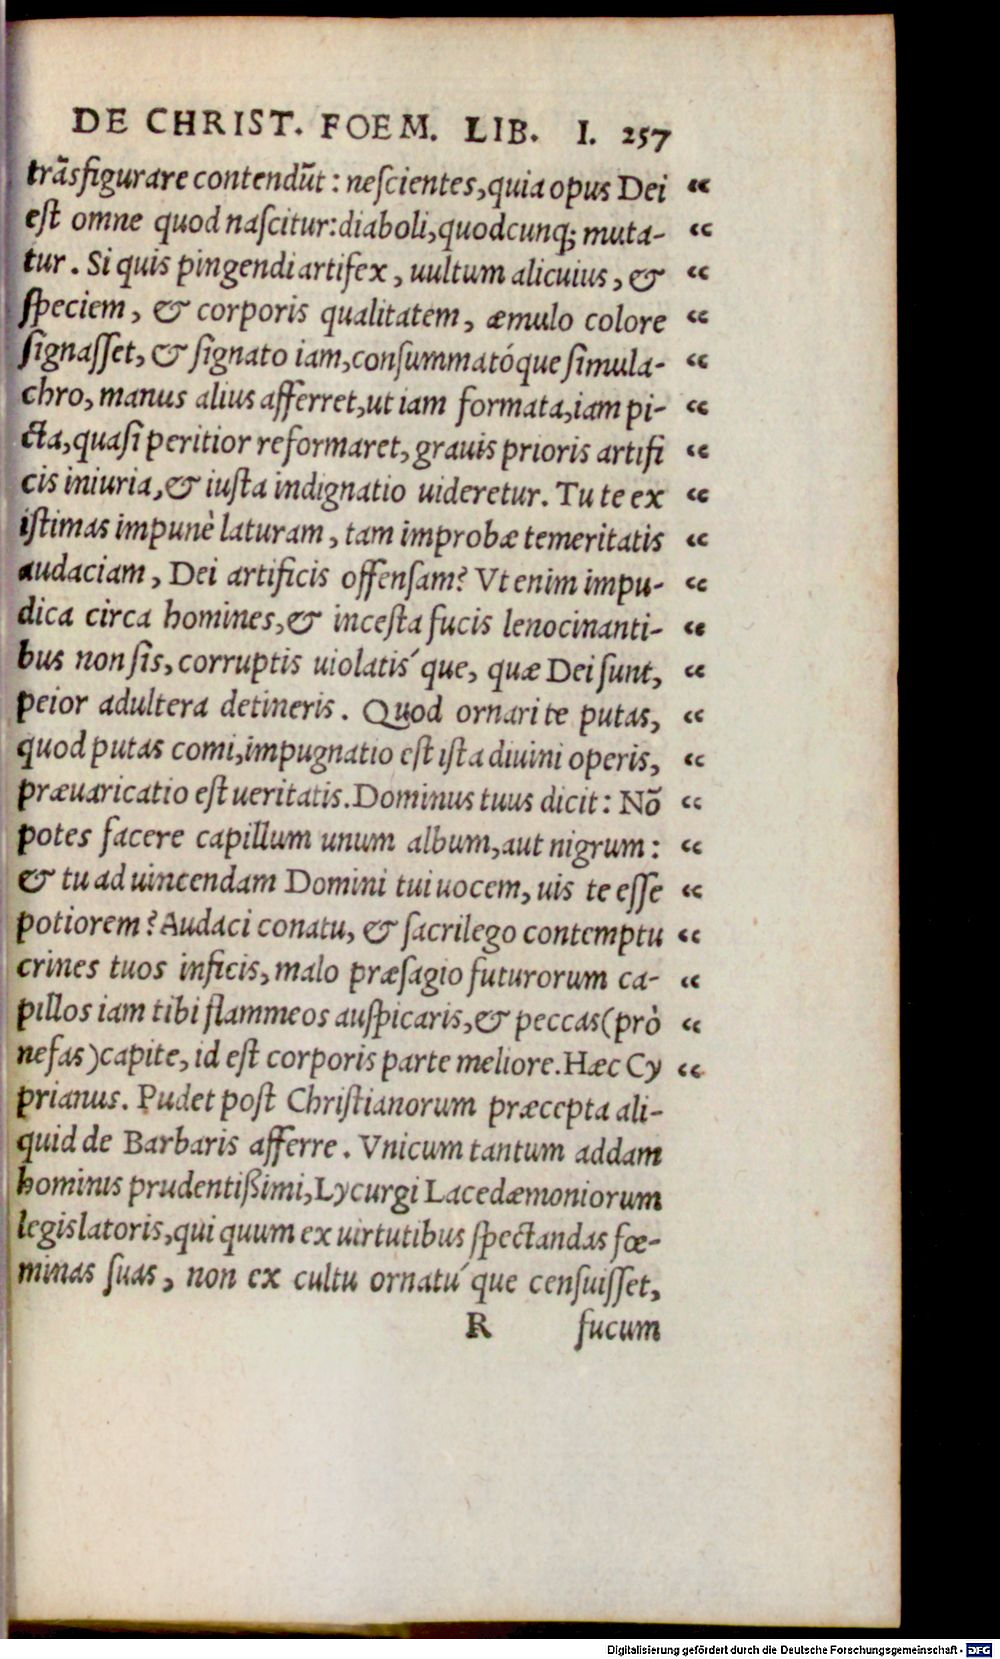 DE CHRIST. FOEM. LIB. I. 257
trãsfigurare contendũt : nescientes, quia opus Dei “
est omne quod nascitur: diaboli, quodcunq; muta- “
tur. Si quis pingendi artifex, uultum alicuius, & “
speciem, & corporis qualitatem, æmulo colore “
signasset, & signato iam, consummatóque simula- “
chro, manus alius afferret, ut iam formata, iam pi- “
cta, quasi peritior reformaret, grauis prioris artifi “
cis iniuria, & iusta indignatio uideretur. Tu te ex “
istimas impunè laturam, tam improbæ temeritatis “
audaciam, Dei artificis offensam? Vt enim impu- “
dica circa homines, & incesta fucis lenocinanti- “
bus non sis, corruptis uiolatis´que, quæ Dei sunt, “
peior adultera detineris. Quod ornari te putas, “
quod putas comi, impugnatio est ista diuini operis, “
præuaricatio est ueritatis. Dominus tuus dicit: Nõ “
potes facere capillum unum album, aut nigrum: “
& tu ad uincendam Domini tui uocem, uis te esse “
potiorem? Audaci conatu, & sacrilego contemptu “
crines tuos inficis, malo præsagio futurorum ca- “
pillos iam tibi flammeos auspicaris, & peccas (prò “
nefas) capite, id est corporis parte meliore. Hæc Cy “
prianus. Pudet post Christianorum præcepta ali-
quid de Barbaris afferre. Vnicum tantum addam
hominis prudentißimi, Lycurgi Lacedæmoniorum
legislatoris, qui quum ex uirtutibus spectandas fœ-
minas suas, non ex cultu ornatu´que censuisset,
R fucum
Digitalisierung gefördert durch die Deutsche Forschungsgemeinschaft - DFG